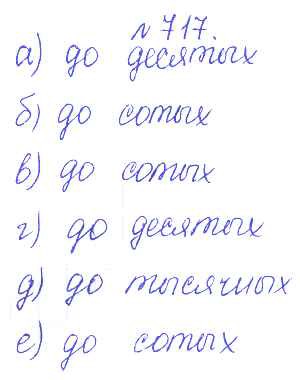 № 717.
а) до десятых
б) до сотых
в) до сотых
г) до десятых
д) до тысячных
е) до сотых